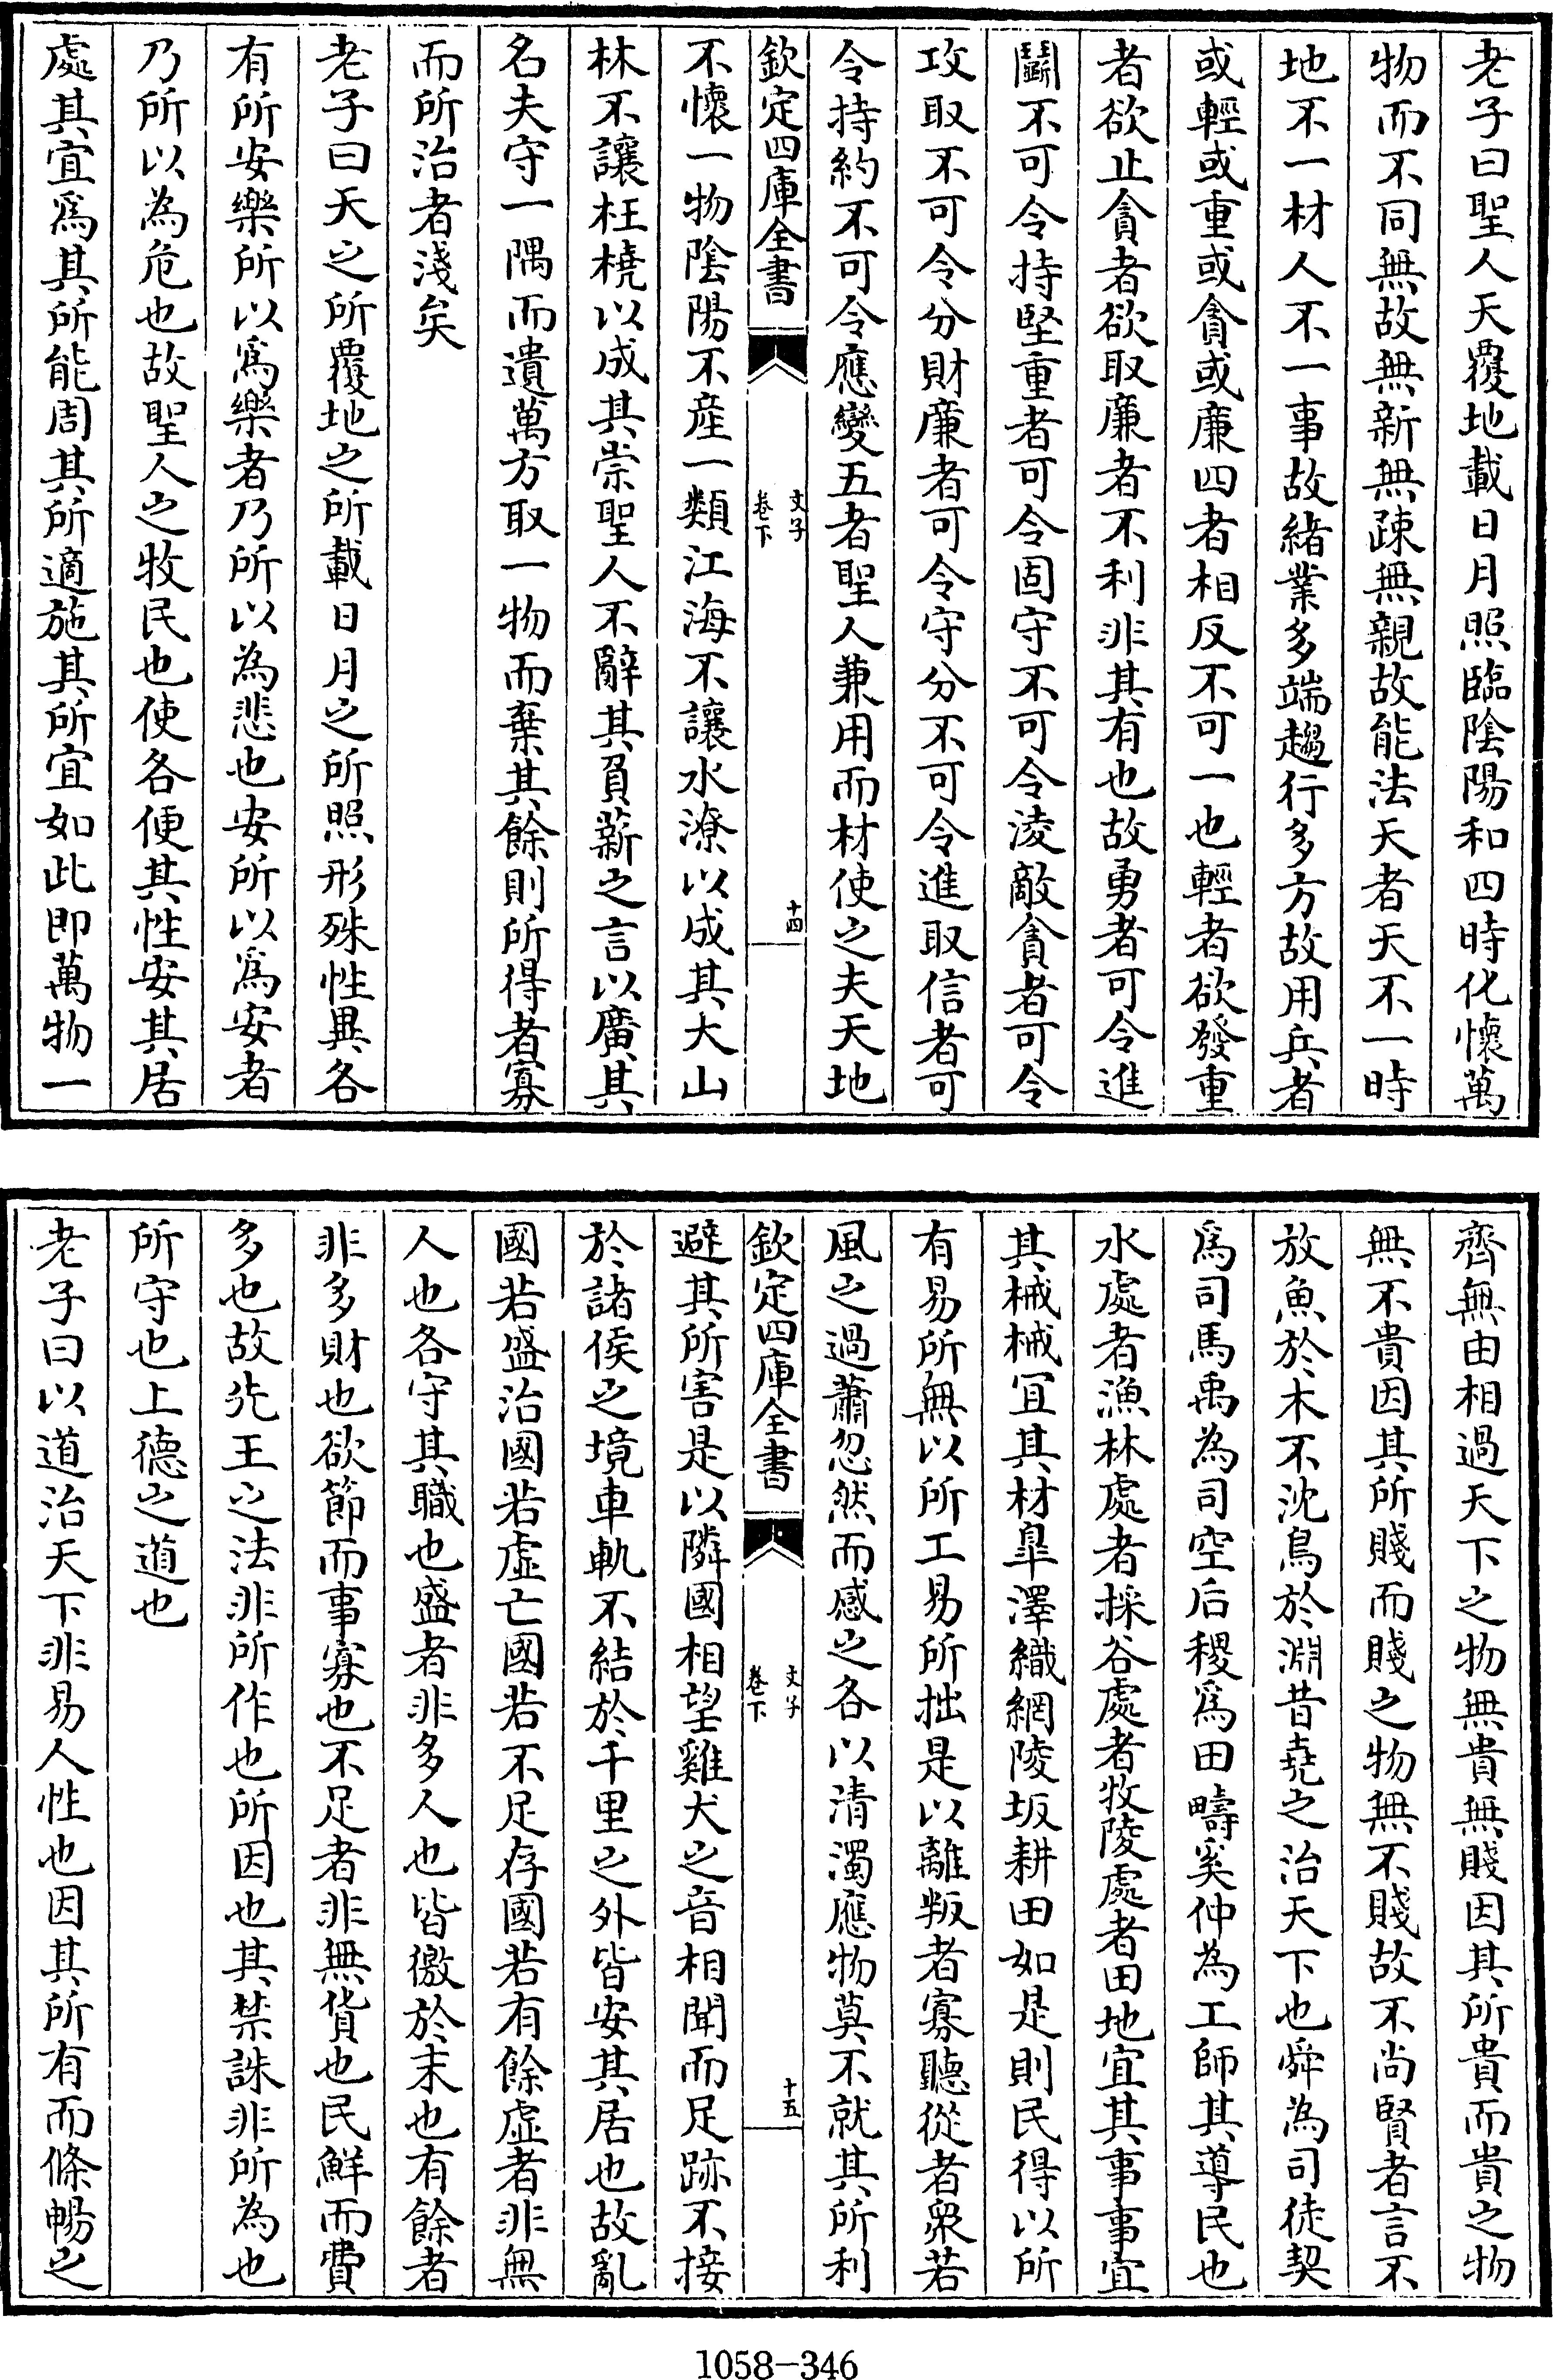 老子曰聖人天覆地載日月照臨陰陽和四時化懷萬
物而不同無故無新無疎無親故能法天者天不一時
地不一材人不一事故緒業多端趨行多方故用兵者
或輕或重或貪或廉四者相反不可一也輕者欲發重
者欲止貪者欲取廉者不利非其有也故勇者可令進
鬬不可令持堅重者可令固守不可令淩敵貪者可令
攻取不可令分財廉者可令守分不可令進取信者可
令持約不可令應變五者聖人兼用而材使之夫天地
欽定四庫全書
文子
卷下
十四
不懷一物陰陽不産一類江海不讓水潦以成其大山
林不讓枉橈以成其崇聖人不辭其負薪之言以廣其
名夫守一隅而遺萬方取一物而棄其餘則所得者寡
而所治者淺矣
老子曰天之所覆地之所載日月之所照形殊性異各
有所安樂所以爲樂者乃所以為悲也安所以爲安者
乃所以為危也故聖人之牧民也使各便其性安其居
處其宜爲其所能周其所適施其所宜如此即萬物一
齊無由相過天下之物無貴無賤因其所貴而貴之物
無不貴因其所賤而賤之物無不賤故不尚賢者言不
放魚於木不沈鳥於淵昔堯之治天下也舜為司徒契
爲司馬禹為司空后稷爲田疇奚仲為工師其導民也
水處者漁林處者採谷處者牧陵處者田地宜其事事宜
其械械宜其材臯澤織網陵坂耕田如是則民得以所
有易所無以所工易所拙是以離叛者寡聽從者衆若
風之過蕭忽然而感之各以清濁應物莫不就其所利
欽定四庫全書
文子
卷下
十五
避其所害是以隣國相望雞犬之音相聞而足跡不接
於諸侯之境車軌不結於千里之外皆安其居也故亂
國若盛治國若虛亡國若不足存國若有餘虛者非無
人也各守其職也盛者非多人也皆徼於末也有餘者
非多財也欲節而事寡也不足者非無貨也民鮮而費
多也故先王之法非所作也所因也其禁誅非所為也
所守也上德之道也
老子曰以道治天下非易人性也因其所有而條暢之
1058-346